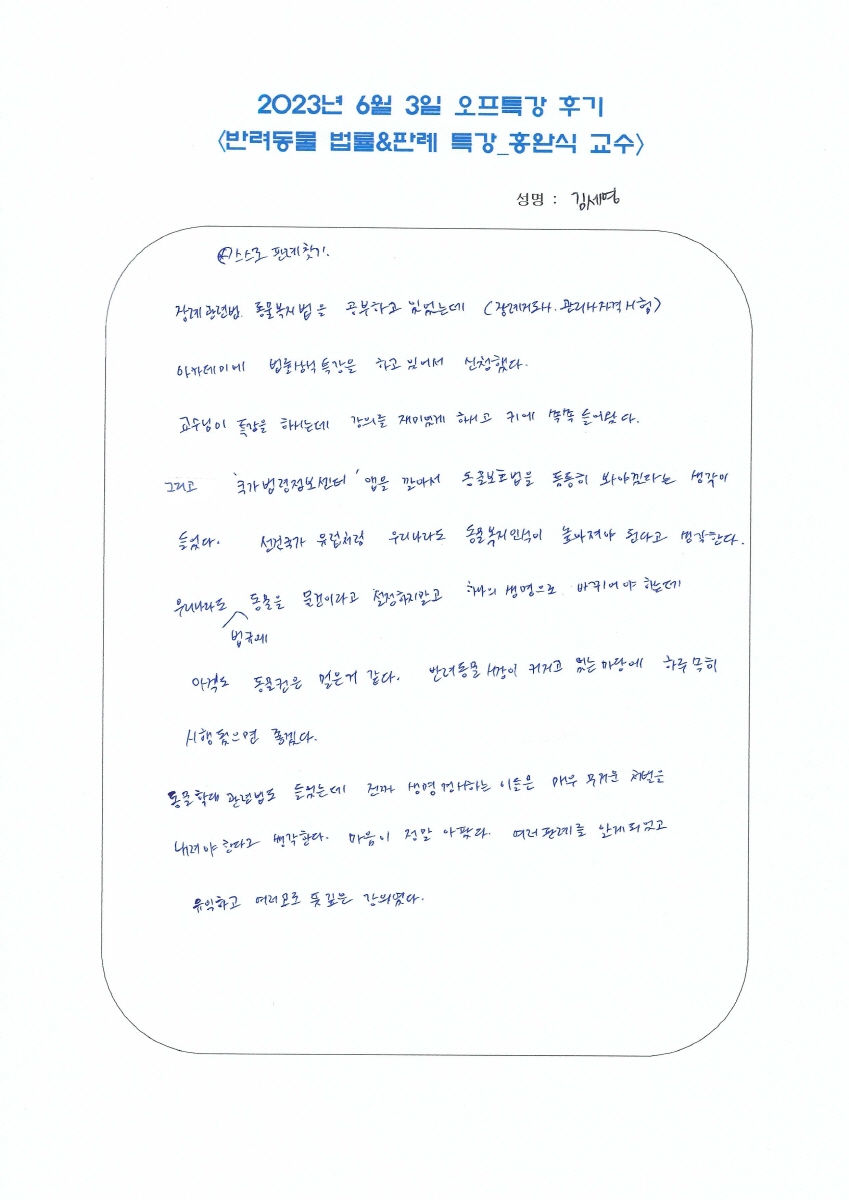 2023년 6월 3일 오프특강 후기
<반려동물 법률&판례 특강_홍완식 교수>
성명 : 김세영
스스로 판례찾기.
장례관련법. 동물복지법을 공부하고 있었는데 (장례지도사.관리사자격시험)
아카데미에 법률상식특강을 하고 있어서 신청했다.
교수님이 특강을 하시는데 강의를 재미있게 하시고 귀에 쏙쏙 들어왔다.
그리고 '국가법령정보센터' 앱을 깔아서 동물보호법을 틈틈히 봐야겠다는 생각이
들었다. 선진국가 유럽처럼 우리나라도 동물복지인식이 높아져야 된다고 생각한다.
우리나라도 동물을 물건이라고 설정하지말고 하나의 생명으로 바뀌어야 하는데
법규에
아직도 동물권은 멀은거 같다. 반려동물 시장이 커지고 있는 마당에 하루 속히
시행됬으면 좋겠다.
동물학대 관련법도 들었는데 진짜 생명경시하는 이들은 매우 무거운 처벌을
내려야 한다고 생각한다. 마음이 정말 아팠다. 여러판례를 알게되었고
유익하고 여러모로 뜻 깊은 강의였다.